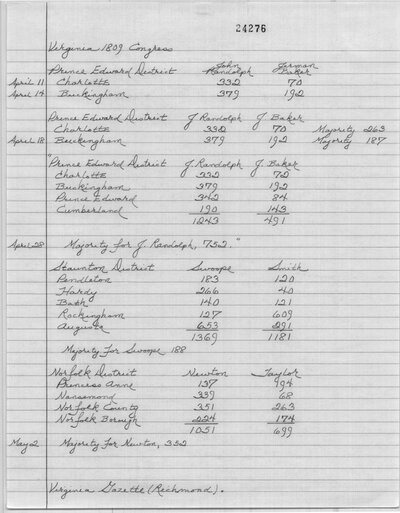 24276
Virginia 1809 Congress
Prince Edward District John Randolph Jerman Baker
April 11 Charlotte 332 70
April 14 Buckingham 379 192
Prince Edward District J Randolph J Baker
Charlotte 332 70 Majority 263
April 18 Buckingham 379 192 Majority 187
"Prince Edward District J Randolph J Baker
Charlotte 332 72
Buckingham 379 192
Prince Edward 342 84
Cumberland 190 143
1243 491
April 28 Majority for J. Randolph, 752."
Staunton District Swoope Smith
Pendleton 183 120
Hardy 266 40
Bath 140 121
Rockingham 127 609
Augusta 653 291
1369 1181
Majority For Swoope 188
Norfolk District Newton Taylor
Princess Anne 137 194
Nansemond 339 68
Norfolk County 351 263
Norfolk Borough 224 174
1051 699
May 2 Majority For Newton, 352
Virginia Gazette (Richmond).